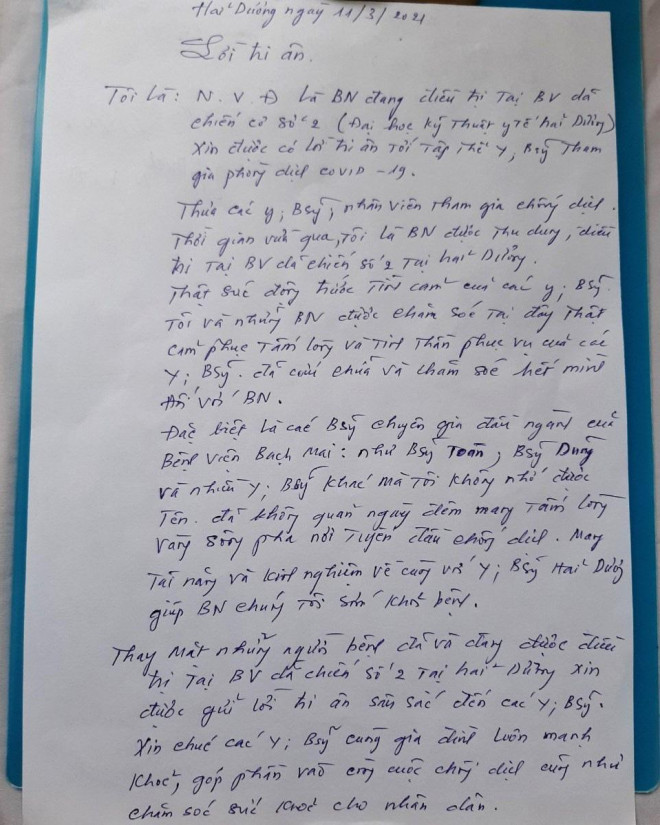 Hải Dương ngày 11/3/2021
Lời tri ân.
Tôi là: N.V.Đ là BN đang điều trị tại BV dã
chiến cơ sở 2 (Đại học kỹ thuật y tế Hải Dương)
Xin được có lời tri ân tới tập thể y, Bsỹ tham
gia phòng dịch COVID-19.
Thưa các y, Bsỹ, nhân viên tham gia chống dịch.
Thời gian vừa qua, tôi là BN được thu dung, điều
trị tại BV dã chiến số 2 tại Hải Dương.
Thật xúc động trước tình cảm của các y, Bsỹ.
Tôi và những BN được chăm sóc tại đây thật
cảm phục tấm lòng và tinh thần phục vụ của các
y, Bsỹ. đã cứu chữa và chăm sóc hết mình
đối với BN.
Đặc biệt là các Bsỹ chuyên gia đầu ngành của
Bệnh viện Bạch Mai: như Bsỹ Toàn, Bsỹ Dũng
và nhiều y, Bsỹ khác mà tôi không nhớ được
tên. đã không quản ngày đêm mang tấm lòng
vàng xông pha nơi tuyến đầu chống dịch. Mang
tài năng và kinh nghiệm về cùng với y, Bsỹ Hải Dương
giúp BN chúng tôi sớm khỏi bệnh.
Thay mặt những người bệnh đã và đang được điều
trị tại BV dã chiến số 2 tại Hải Dương xin
được gửi lời tri ân sâu sắc đến các y, Bsỹ.
Xin chúc các y, Bsỹ cùng gia đình luôn mạnh
khoẻ, góp phần vào công cuộc chống dịch cũng như
chăm sóc sức khoẻ cho nhân dân.